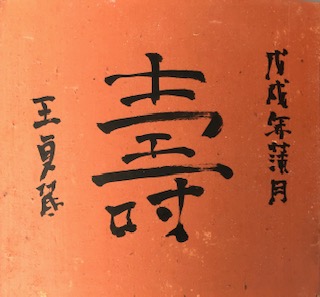 戊戌年蒲月
壽
王貞